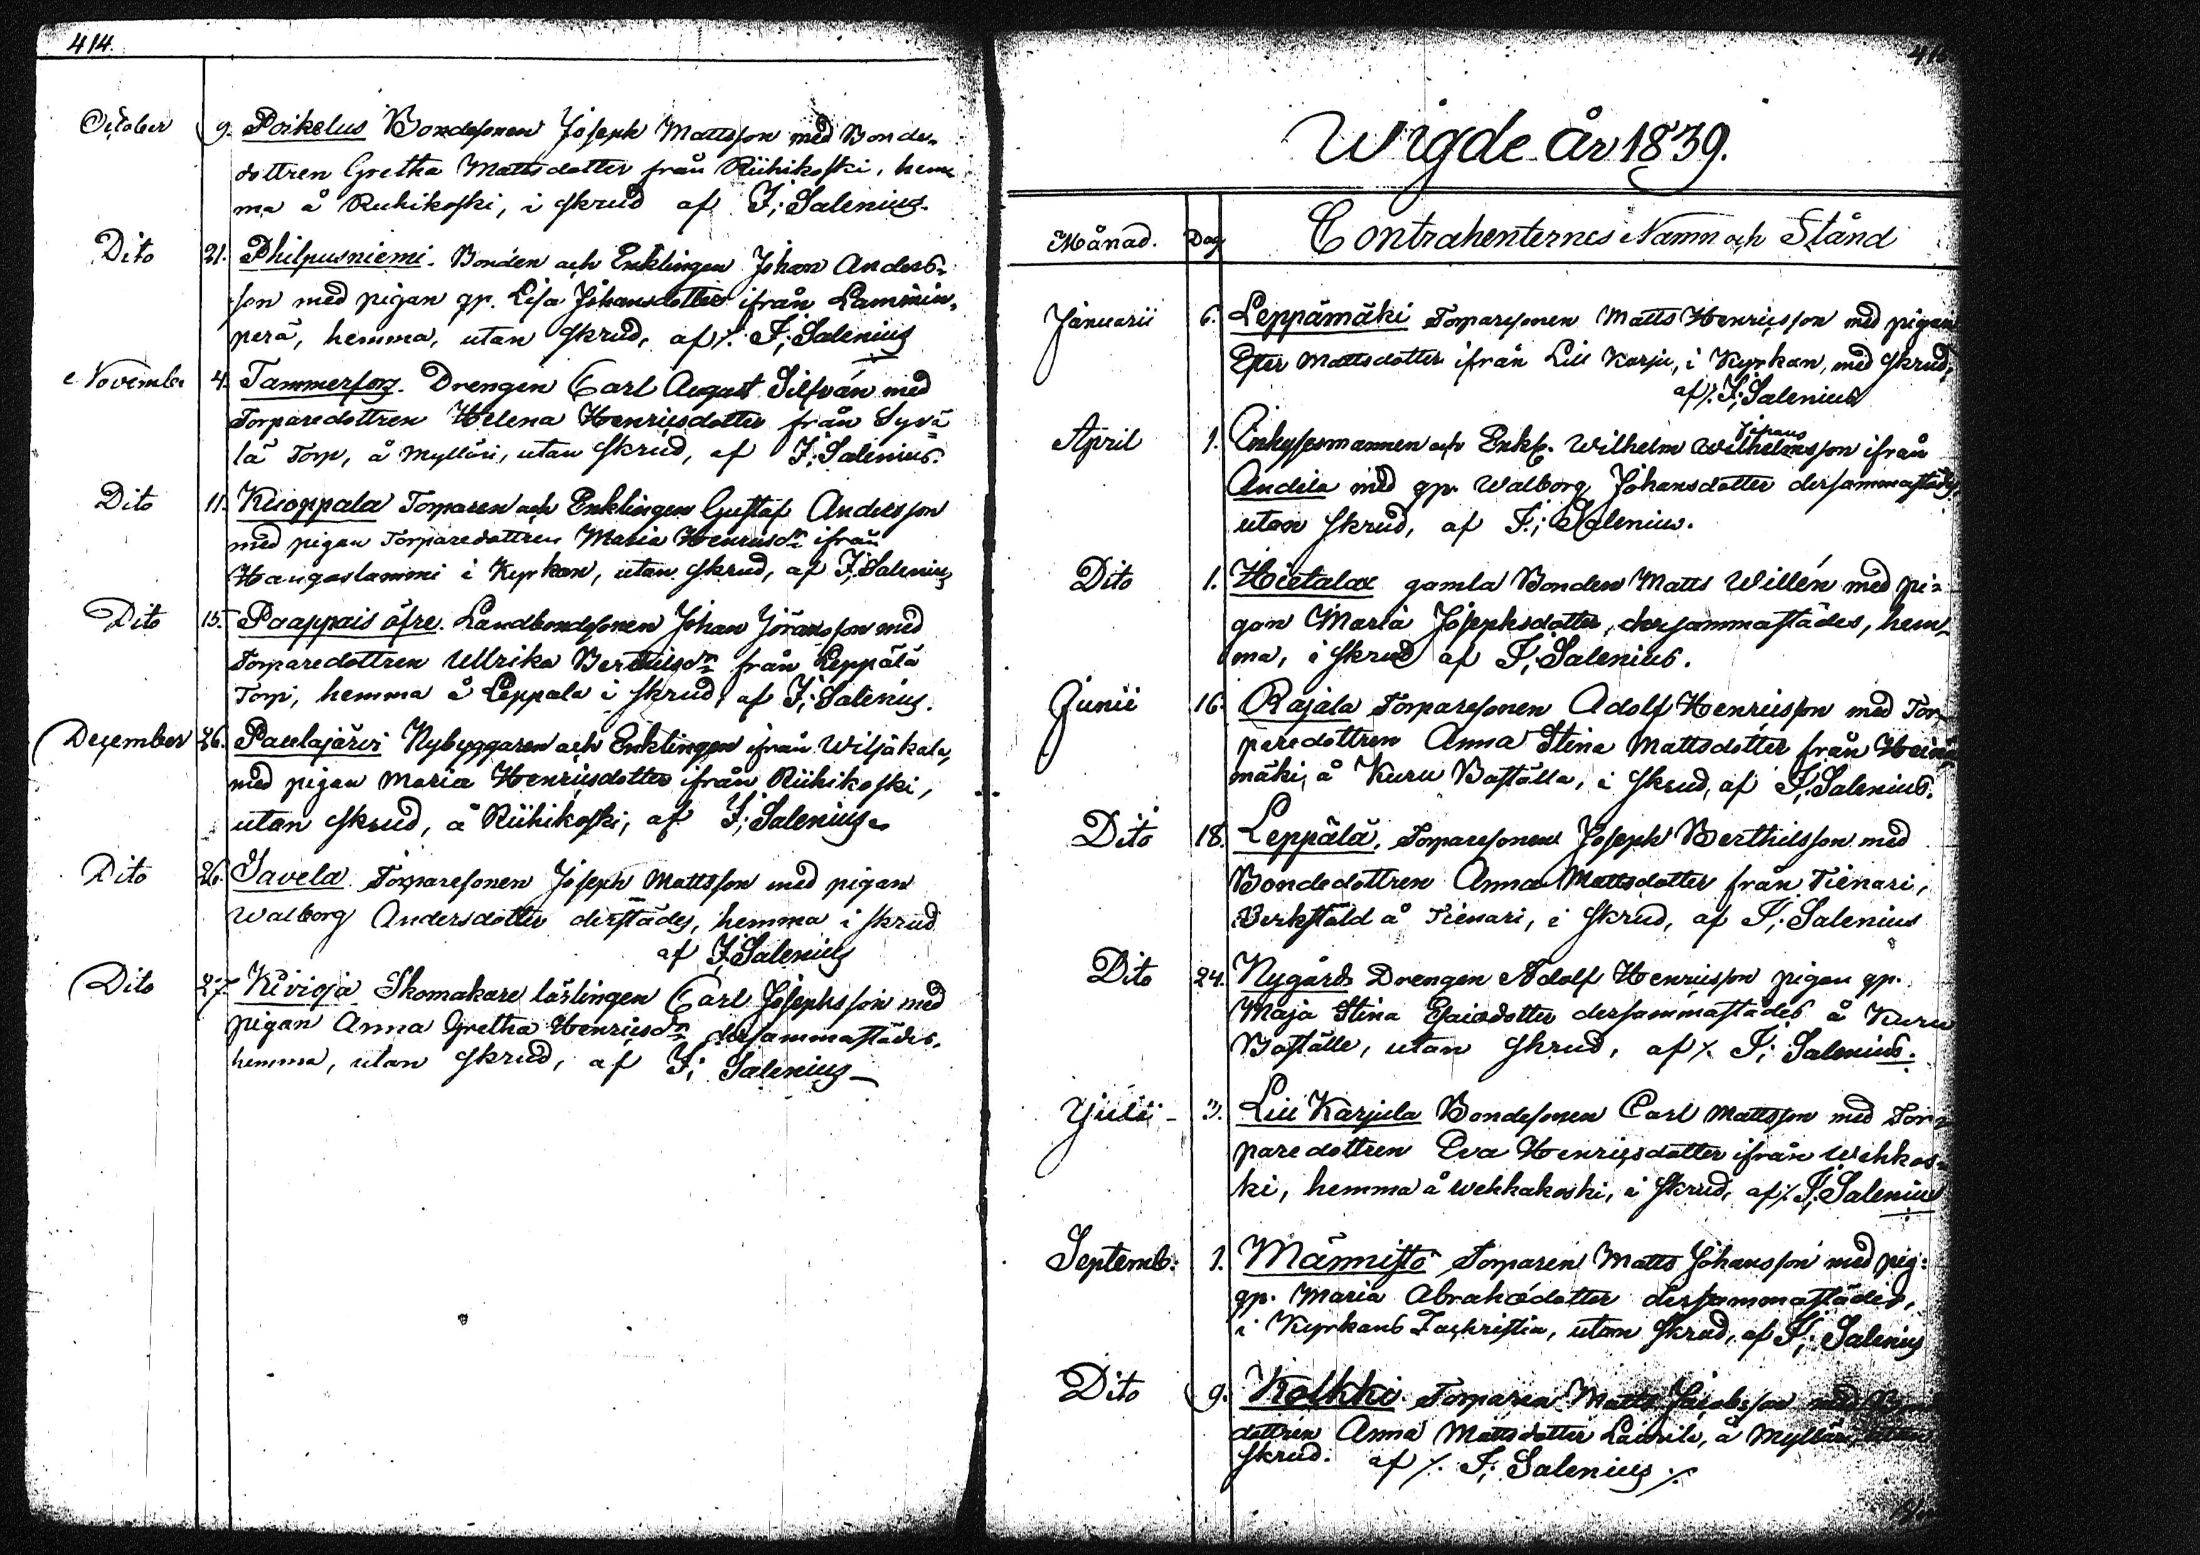 414.
October 9. Poikelus Bondesonen Joseph Mattsson med Bonde-
dottren Gretha Mattsdotter från Riihikoski, hem-
ma å Ruhikoski, i skrud af F; Salenius.
Dito 21. Philpusniemi. Bonden och Enklingen Johan Anders-
son med pigan qp. Lisa Johansdotter ifrån Lammin-
perä, hemma, utan skrud, af ./. F; Salenius
November 4. Tammerfors. Drengen Carl August Silfván med
Torparedottren Helena Henricsdotter från Syvä
lä Torp, å Mylläri, utan skrud, af F; Salenius.
Dito 11. Kuoppala Torparen och Enklingen Gustaf Andersson
med pigan Torparedottren Maria Henricsdr ifrån
Haugaslammi i Kyrkan, utan skrud, af F; Salenius
Dito 15. Paappais öfre. Landbondesonen Johan Jöransson med
Torparedottren Ullrika Bertilsdr från Leppälä
Torp, hemma å Leppala i skrud, af F; Salenius.
December 26. Paulajärvi Nybyggaren och Enklingen ifrån Wiljakala,
med pigan Maria Henricsdotter ifrån Riihikoski,
utan skrud, å Riihikoski, af F; Salenius
Dito 26. Savela Torparesonen Joseph Mattsson med pigan
Walborg Andersdotter derstädes, hemma i skrud
af F; Salenius
Dito 27. Kivioja Skomakare lärlingen Carl Josephsson med
pigan Anna Gretha Henricsdr dersammastädes,
hemma, utan skrud, af F; Salenius
Wigde år 1839.
Månad. Dag Contrahenternes Namn och Stånd
Januarii 6. Leppämäki Torparesonen Matts Henricsson med pigan
Ester Mattsdotter ifrån Lill Karju, i Kyrkan, med skrud,
af ./. F; Salenius
Johans
April 1. Inhysesmannen och Enkl. Wilhelm Wilhelmsson ifrån
Andila med qp. Walborg Johansdotter dersammastädes
utan skrud, af F; Salenius.
Dito 1. Hietalax gamla Bonden Matts Willén med pi-
gan Maria Josephsdotter, dersammastädes, hem-
ma, i skrud af F; Salenius.
Junii 16. Rajala Torparesonen Adolf Henricsson med Tor-
paredottren Anna Stina Mattsdotter från Hein
mäki, å Kuru Boställa, i skrud, af F; Salenius.
Dito 18. Leppälä, Torparesonen Joseph Berthilsson med
Bondedottren Anna Mattsdotter från Tienari,
Verkstäld å Tienari, i skrud, af F; Salenius
Dito 24. Nygård Drengen Adolf Henricsson pigan qp.
Maja Stina Esaiædotter dersammastädes å Kuru
Boställe, utan skrud, af ./. F; Salenius.
Julii 3. Lill Karjula Bondesonen Carl Mattsson med Tor-
paredottren Eva Henricsdotter ifrån Wehkos-
ki, hemma å Wehkakoski, i skrud, af ./. F; Salenius
Septemb: 1. Männistö Torparen Matts Johansson med pig:
qp. Maria Abrahædotter dersammastädes,
i Kyrkans Sachristia, utan skrud, af F; Salenius
Dito 9. Kolkki Torparen Matts Jacobsson med
dottren Anna Mattsdotter Laurila, å Mylläri, utan
skrud. af ./. F; Salenius ./.